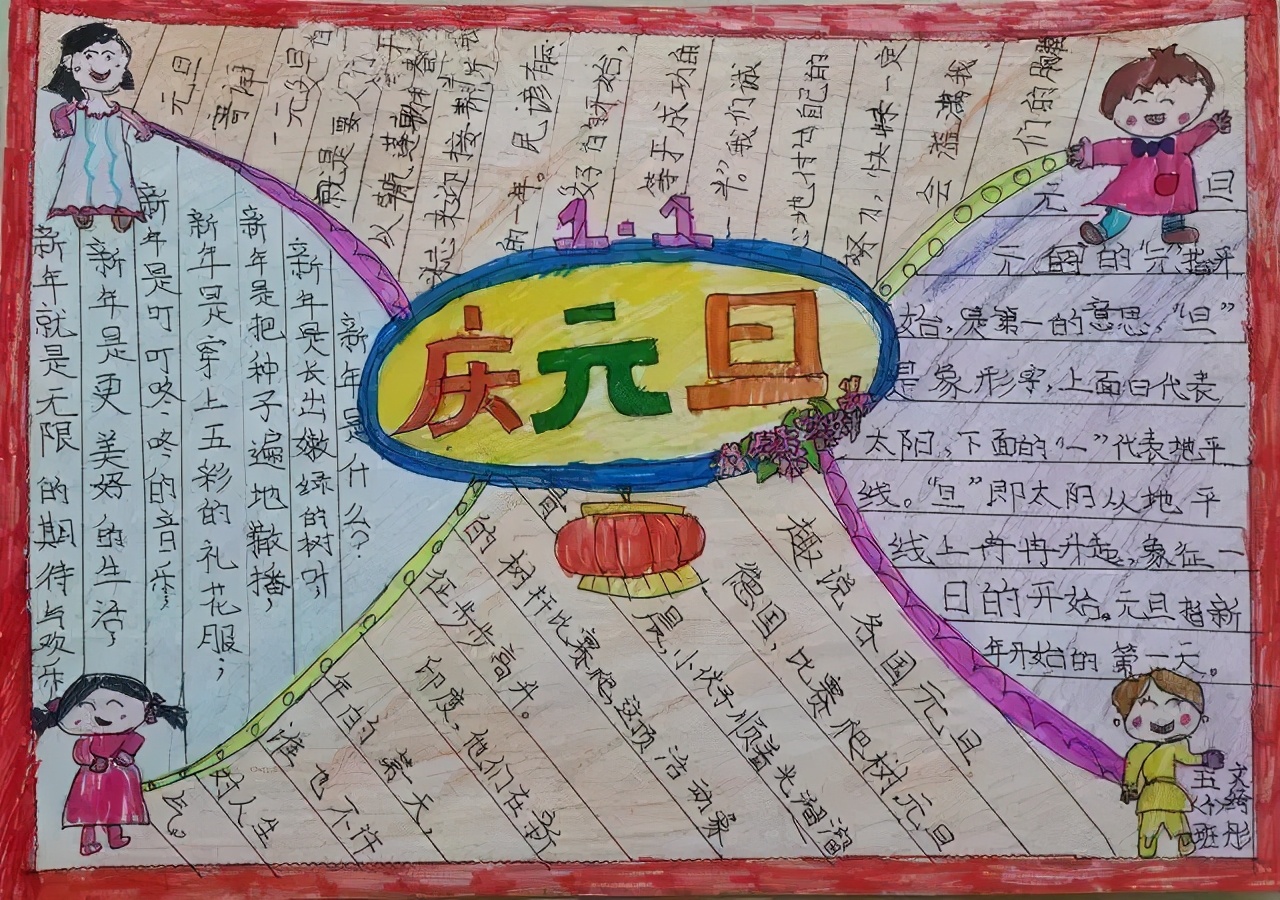 1·1
庆元旦
元旦
寄语
元旦
假是要人们
的一年。
见谚有云:
好的开始,
等于成功的
一半”。我们诚
心地付出自己的
努力,快乐一定
会溢满我
们的胸
元 旦
元旦的“元”指开
始,是第一的意思,“旦”
是象形字,上面日代表
太阳,下面的“一”代表地平
线。“旦”即太阳从地平
线上冉冉升起,象征一
日的开始。元旦指新
年开始的第一天。
新年是什么?
新年是长出嫩绿的树叶;
新年是把种子遍地散播;
新年是穿上五彩的礼花服;
新年是叮叮咚咚的音乐;
新年是更美好的生活;
新年就是无限的期待与欢乐
趣说各国元旦
德国,比赛爬树元旦
晨,小伙子顺着光溜溜
的树杆比赛爬,这项活动象
征步步高升。
印度,他们在新
年的第一天,
谁也不许
对人生
气。
五(八)班
文绮彤